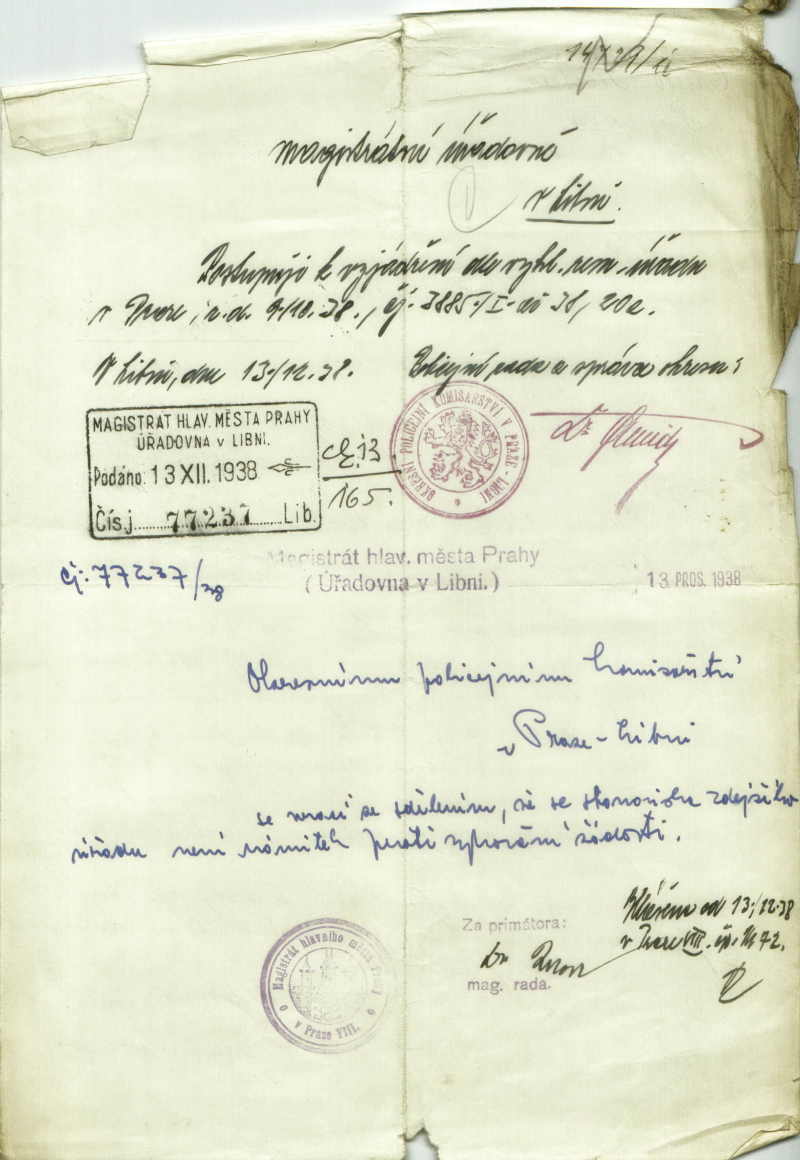 magistrátní úřadovně
v Libni.
Postupuji k vyjádření dle vyhl. zem. úřadu
v Praze, z. d. 9./10. 38., čj. 3885./I- ai 38, 20a.
V Libni, dne 13./12. 38. Policejní rada a správa okresu:
MAGISTRÁT HLAV. MĚSTA PRAHY
ÚŘADOVNA v LIBNI.
Podáno: 13 XII. 1938
Čís. j. 77237 Lib.
13
165.
OKRESNÍ POLICEJNÍ KOMISAŘSTVÍ V PRAZE - LIBNI
Dr
Magistrát hlav. města Prahy
(Úřadovna v Libni.)
13. PROS. 1938
čj: 77237/38
Okresnímu policejnímu komisařství
v Praze - Libni
se vrací se sdělením, že se stanoviska zdejšího
úřadu není námitek proti vyhovění žádosti.
Hlášena od 13./12. 38
v Praze VIII. čp.
Za primátora:
Dr
mag. rada.
Magistrát hlavního města Prahy
v Praze VIII.